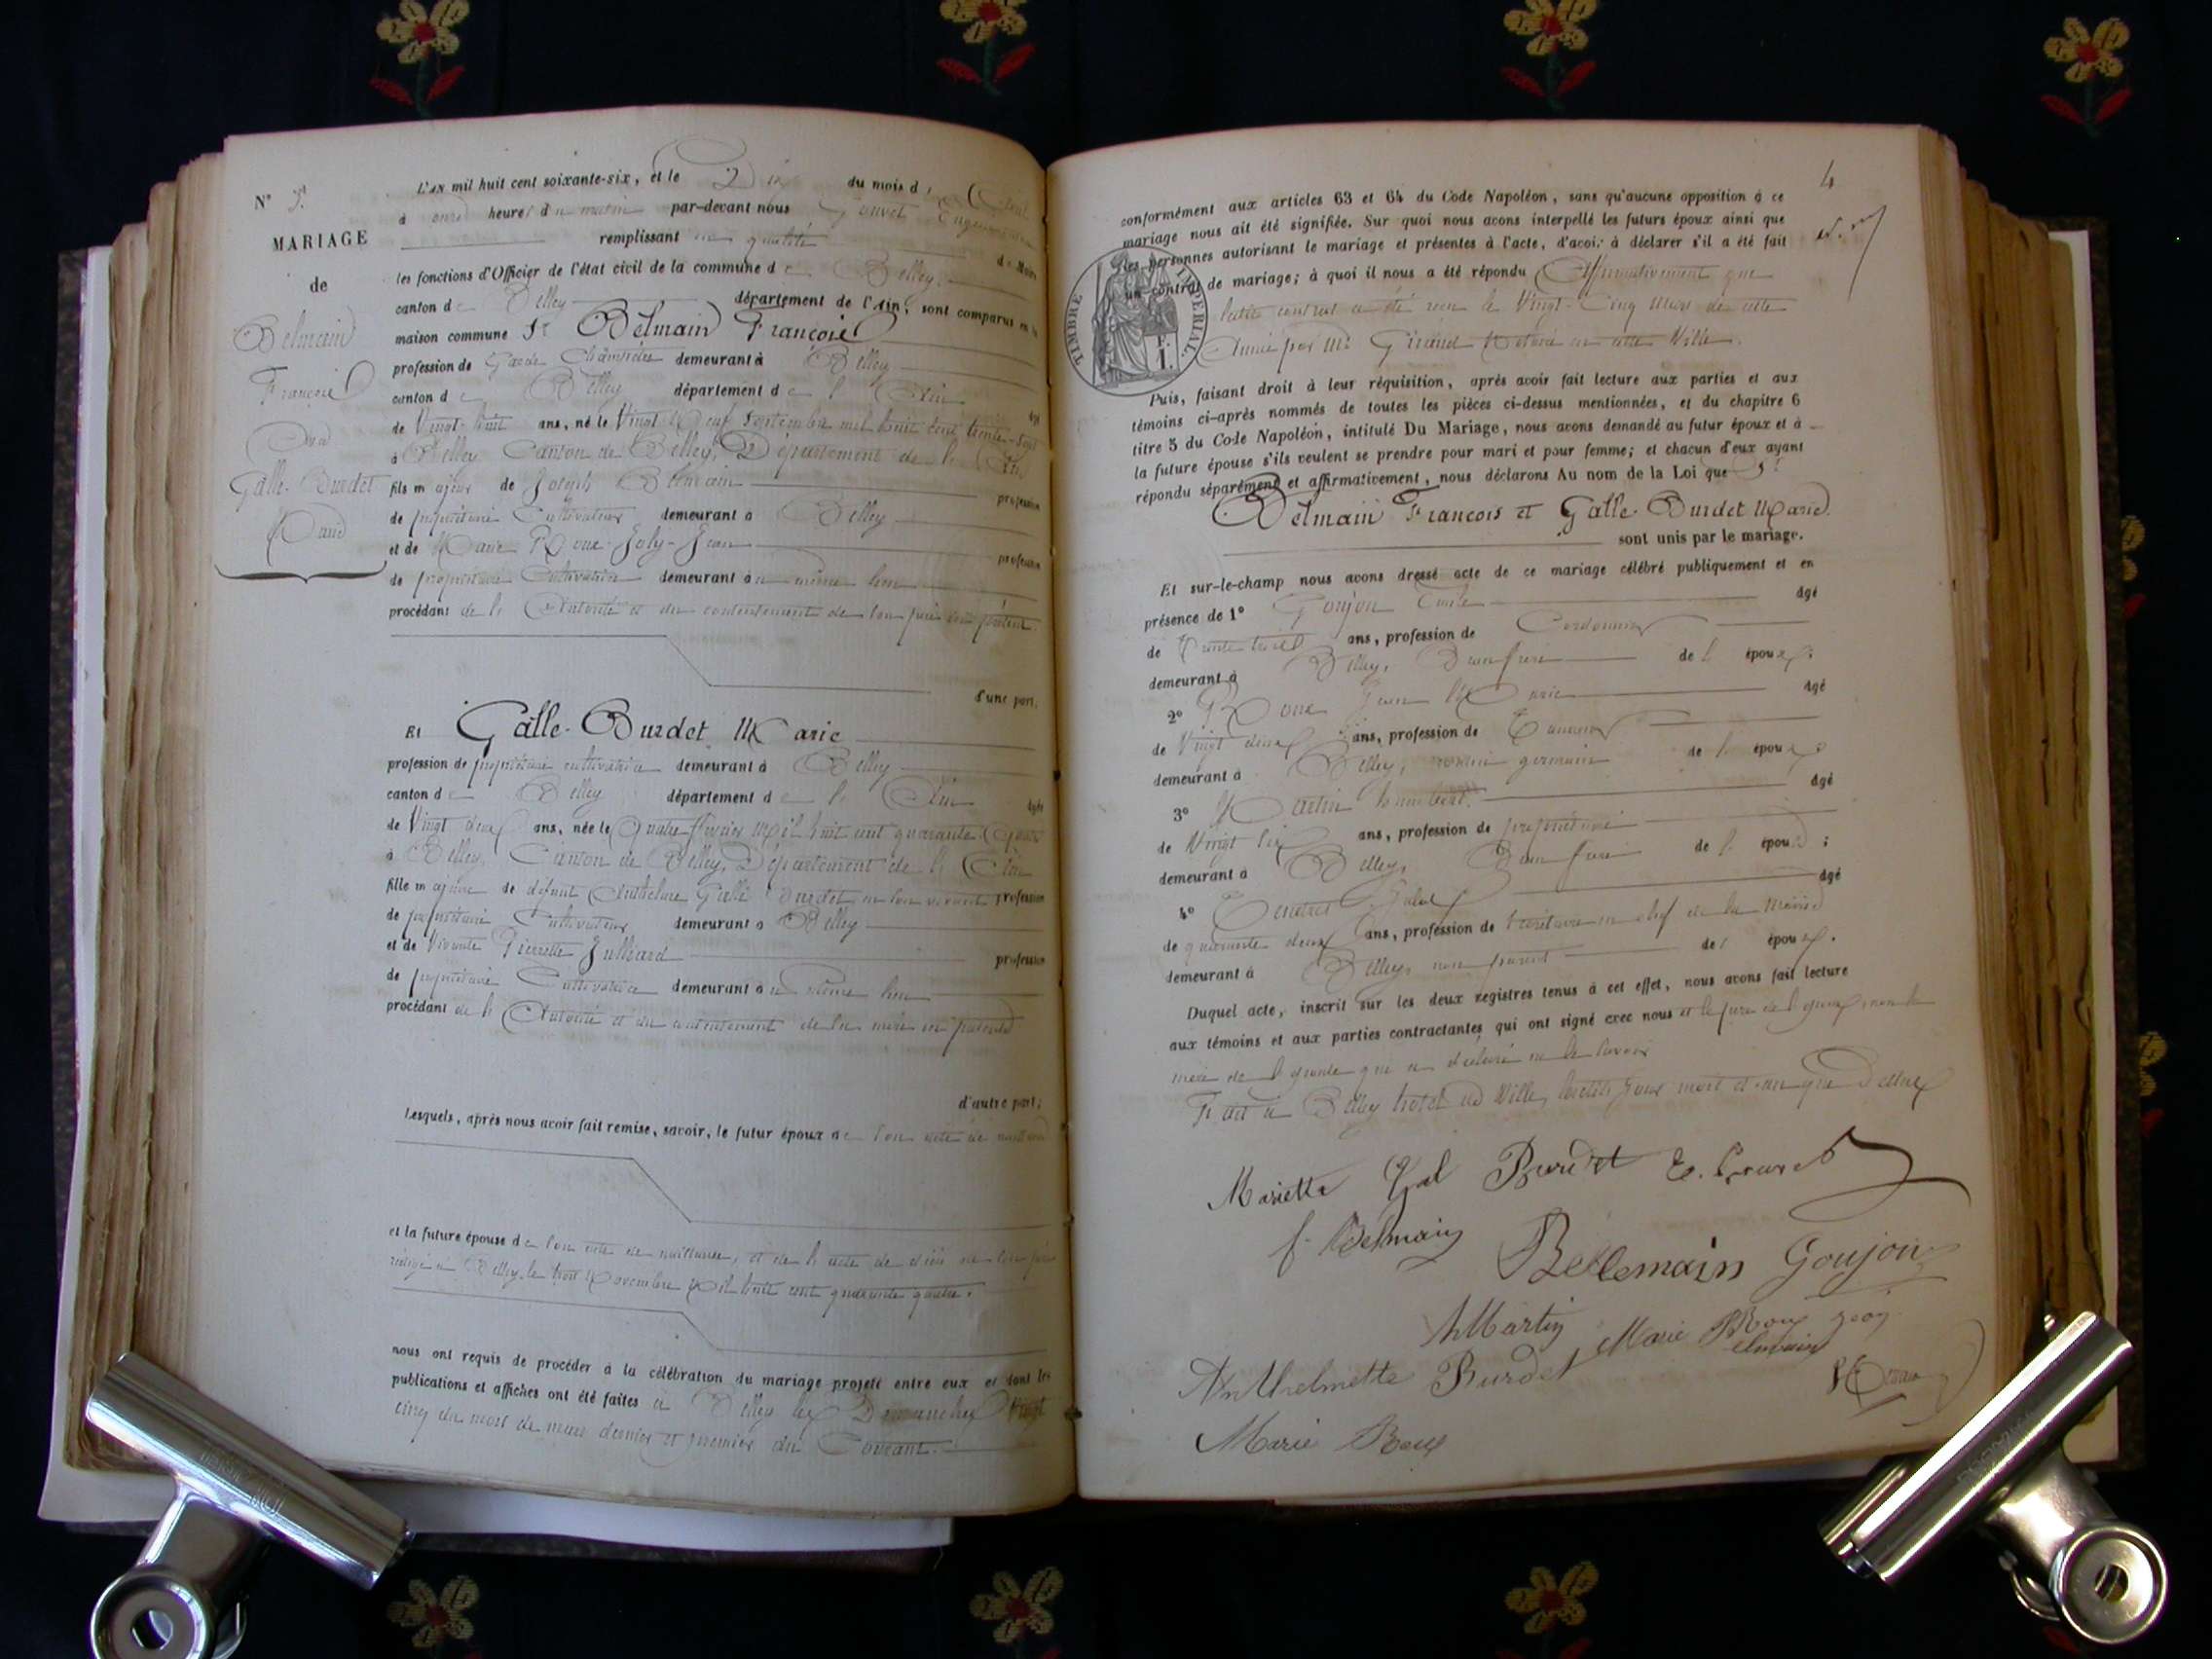 N° 5.
MARIAGE
de
Belmain
François
Et
Galle-Burdet
Marie
L'AN mil huit cent soixante-six, et le Dix du mois d'Avril
à onze heures du matin par-devant nous
remplissant en qualité de Maire
les fonctions d'Officier de l'état civil de la commune de Belley,
canton de Belley département de l'Ain, sont comparus en la
maison commune Sr Belmain François
profession de Garde Champêtre demeurant à Belley
canton de Belley département de l'Ain âgé
de Vingt-huit ans, né le Vingt Neuf Septembre mil huit cent trente-sept
à Belley Canton de Belley, Département de l'Ain
fils majeur de Joseph Belmain profession
de propriétaire Cultivateur demeurant à Belley
et de Marie Roux-Joly-Jean profession
de propriétaire Cultivatrice demeurant au même lieu
procédant de l'Autorité et du consentement de son père ici présent
d'une part.
Et Galle-Burdet Marie
profession de propriétaire cultivatrice demeurant à Belley
canton de Belley département de l'Ain âgée
de Vingt deux ans, née le Quatre février Mil huit cent quarante Quatre
à Belley, Canton de Belley, Département de l'Ain
fille majeure de défunt Anthelme Galle Burdet en son vivant profession
de propriétaire Cultivateur demeurant à Belley
et de Vivante Pierrette Julliard profession
de propriétaire Cultivatrice demeurant au même lieu
procédant de l'Autorité et du consentement de sa mère ici présente
d'autre part;
Lesquels, après nous avoir fait remise, savoir, le futur époux de son acte de naissance
et la future épouse de son acte de naissance, et de l'acte de décès de son père
rédigé à Belley, le trois Novembre Mil huit cent quarante quatre.
nous ont requis de procéder à la célébration du mariage projeté entre eux et dont les
publications et affiches ont été faites à Belley les Dimanches Vingt
cinq du mois de mars dernier et premier du Courant.
4
conformément aux articles 63 et 64 du Code Napoléon, sans qu'aucune opposition à ce
mariage nous ait été signifiée. Sur quoi nous avons interpellé les futurs époux ainsi que
les personnes autorisant le mariage et présentes à l'acte, d'avoir à déclarer s'il a été fait
un contrat de mariage; à quoi il nous a été répondu Affirmativement que
ledit contrat a été reçu le Vingt-Cinq Mars de cette
Année par Me Giraud Notaire en cette Ville.
TIMBRE IMPERIAL.
1 F.
Puis, faisant droit à leur réquisition, après avoir fait lecture aux parties et aux
témoins ci-après nommés de toutes les pièces ci-dessus mentionnées, et du chapitre 6
titre 5 du Code Napoléon, intitulé Du Mariage, nous avons demandé au futur époux et à
la future épouse s'ils veulent se prendre pour mari et pour femme; et chacun d'eux ayant
répondu séparément et affirmativement, nous déclarons Au nom de la Loi que Sr
Belmain François et Galle-Burdet Marie.
sont unis par le mariage.
Et sur-le-champ nous avons dressé acte de ce mariage célébré publiquement et en
présence de 1° Goujon Emile âgé
de Trente trois ans, profession de Cordonnier
demeurant à Belley, Beau frère de l'époux;
2° Roux Jean Marie âgé
de Vingt deux ans, profession de Tanneur
demeurant à Belley, cousin germain de l'époux
3° Martin humbert. âgé
de Vingt six ans, profession de propriétaire
demeurant à Belley, Beau frère de l'épouse;
4° Jules âgé
de quarante deux ans, profession de Secrétaire en chef de la Mairie
demeurant à Belley, non parent de l'époux.
Duquel acte, inscrit sur les deux registres tenus à cet effet, nous avons fait lecture
aux témoins et aux parties contractantes qui ont signé avec nous et le père de l'époux, non la
mère de l'épouse qui a déclaré ne le savoir
Fait à Belley hotel de Ville, lesdits jour mois et an que Dessus
Mariette Gal Burdet
f. Belmain Bellemain Goujon
h Martin Marie Roux Jean
Anthelmette Burdet
Marie Roux